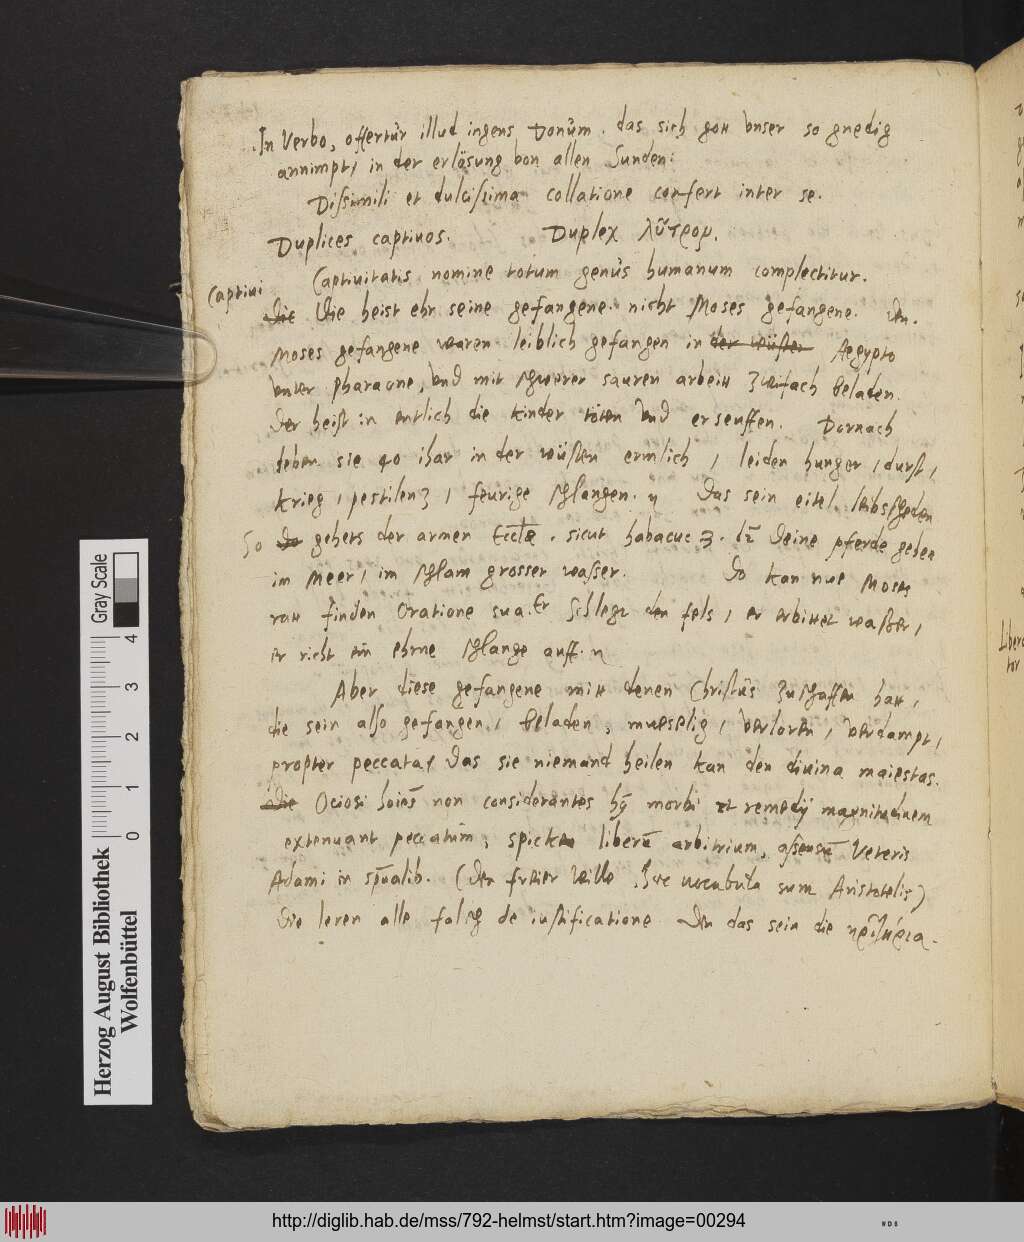 In Verbo, offertur illud ingens Donum. das sich gott Vnser so gnedig
annimpt, in der erlösung von allen Sunden:
Dissimili et dulcissima collatione confert inter se.
Duplices captiuos. Duplex λύτρον.
Captiuitatis nomine totum genus humanum complectitur.
Captiui
Die Die heist ehr seine gefangene. nicht Moses gefangene. Den.
Moses gefangene waren leiblich gefangen in der wüsten Aegypto
vnter pharaone, Vnd mit schwerer sauren arbeitt zwifach beladen.
Der heist in entlich die kinder töten Vnd erseuffen. Dornach
leben sie 40 ihar in der wüsten ermlich, leiden hunger, durst,
krieg, pestilenz, feurige schlangen. Das sein eitel leibscheden
So gehets der armen Eccłæ. sicut habacuc 3. Deine pferde gehen
im Meer, im schlam grosser wasser. Do kan nue Moses
ratt finden Oratione sua. Er schlegt den fels, er erbittet wasser,
er richt ein ehrne schlange auff.
Aber diese gefangene mitt denen Christus zuschaffen hatt,
die sein also gefangen, beladen, mueselig, verloren, verdampt,
propter peccata, Das sie niemand heilen kan den diuina maiestas.
Die Ociosi hoies non considerantes morbi et remedij magnitudinem
extenuant peccatum, liberū arbitrium, Veteris
Adami in spūalib. (Der freier wille uocabula sum Aristotelis)
Die leren alle falsch de iustificatione Den das sein die
Herzog August Bibliothek
Wolfenbüttel
0 1 2 3 4
Gray Scale
http://diglib.hab.de/mss/792-helmst/start.htm?image=00294